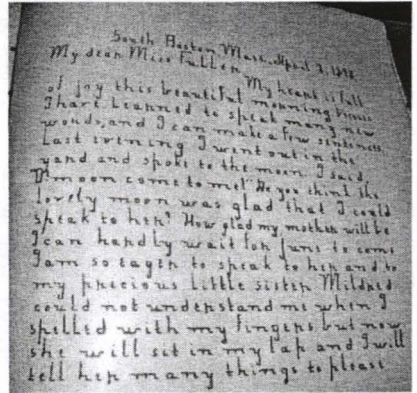 South Boston, Mass. April 3, 1890.
My dear Miss Fuller,
My heart is full
of joy this beautiful morning because
I have learned to speak many new
words, and I can make a few sentences.
Last evening I went out in the
yard and spoke to the moon. I said,
"O! moon come to me!" Do you think the
lovely moon was glad that I could
speak to her? How glad my mother will be
I can hardly wait for June to come
I am so eager to speak to her and to
my precious little sister. Mildred
could not understand me when I
spelled with my fingers, but now
she will sit in my lap and I will
tell her many things to please